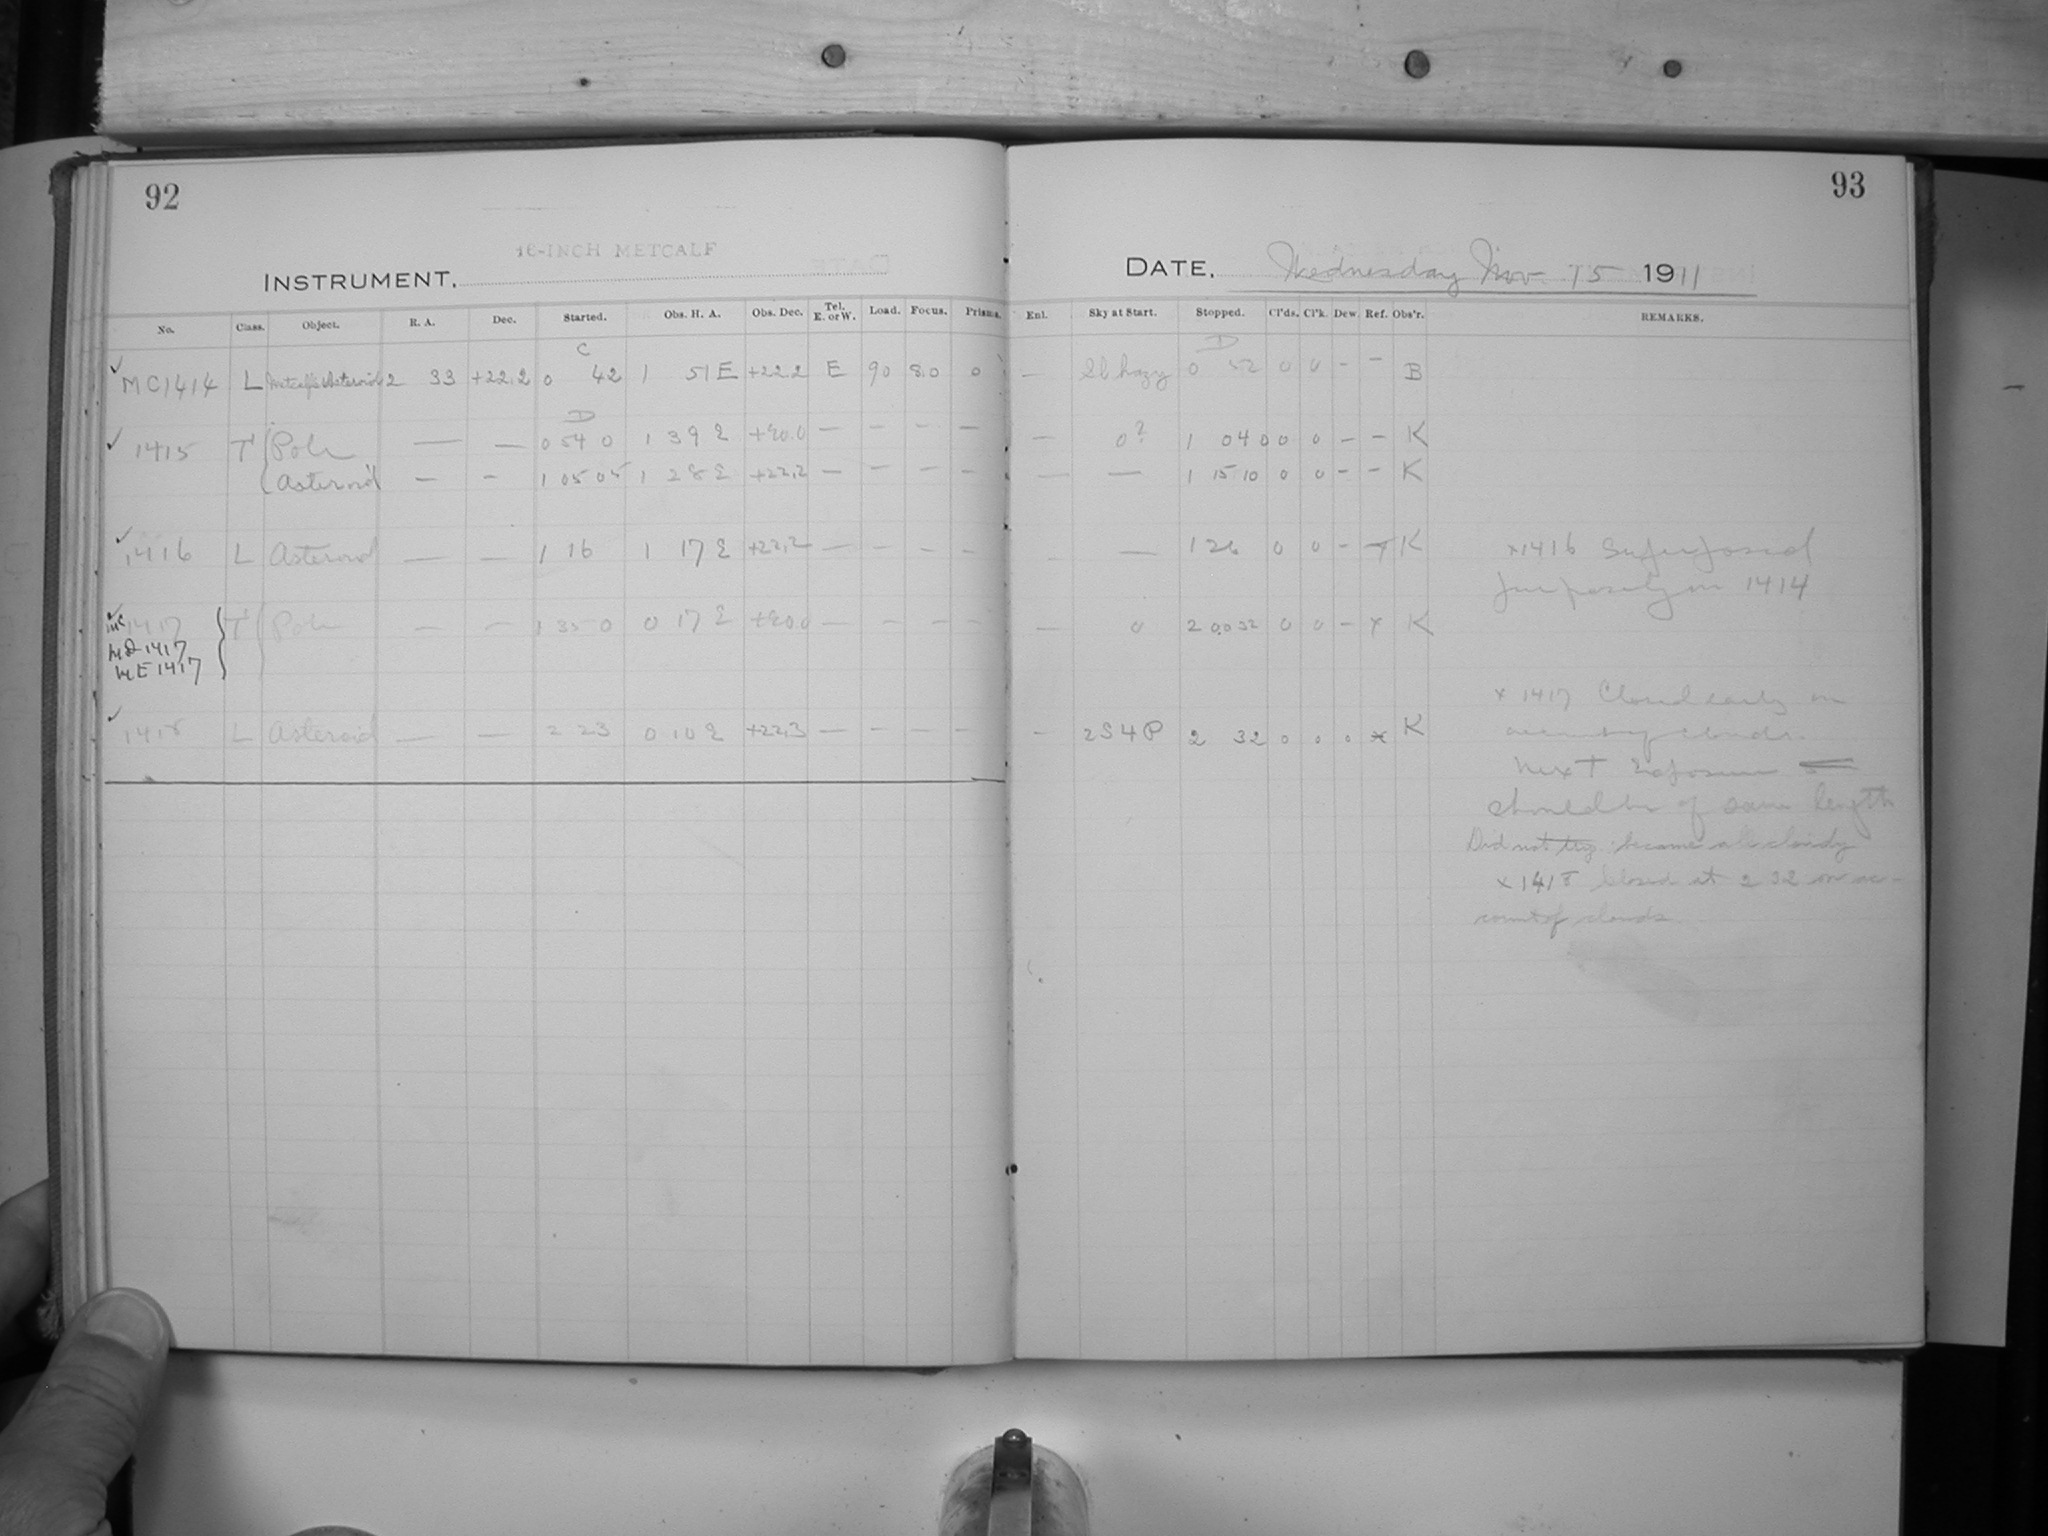 92
16-INCH METCALF
INSTRUMENT.
No. Class. Object. R. A. Dec. Started. Obs. H. A. Obs. Dec. Tel. E. or W. Load. Focus. Prisms.
C
MC1414 L Metcalf's Asteroid 2 33 +22.2 0 42 1 51 E +22.2 E 90 8.0 0
D
1415 T Pole — — 0 54 0 1 39 E +90.0 — — — —
Asteroid — — 1 05 05 1 28 E +22.2 — — — —
1416 L Asteroid — — 1 16 1 17 E +22.2 — — — —
MC 1417 T Pole — — 1 35 0 0 17 E +90.0 — — — —
MD 1417
ME 1417
1418 L Asteroid — — 2 23 0 10 E +22.3 — — — —
93
DATE, Wednesday Nov. 15 1911
Enl. Sky at Start. Stopped. Cl'ds. Cl'k. Dew. Ref. Obs'r. REMARKS.
D
— Sl. hazy 0 52 0 0 - - B
— 0? 1 04 0 0 0 - - K
— — 1 15 10 0 0 - - K
— 1 26 0 0 - x K
— 0 2 0032 0 0 - x K
— 2S4P 2 32 0 0 0 x K
x1416 Superposed
purposely on 1414
x 1417 Closed early on
account of clouds.
Next exposure
should be of same length
Did not try. became all cloudy
x 1418 Closed at 2 32 on ac-
count of clouds.